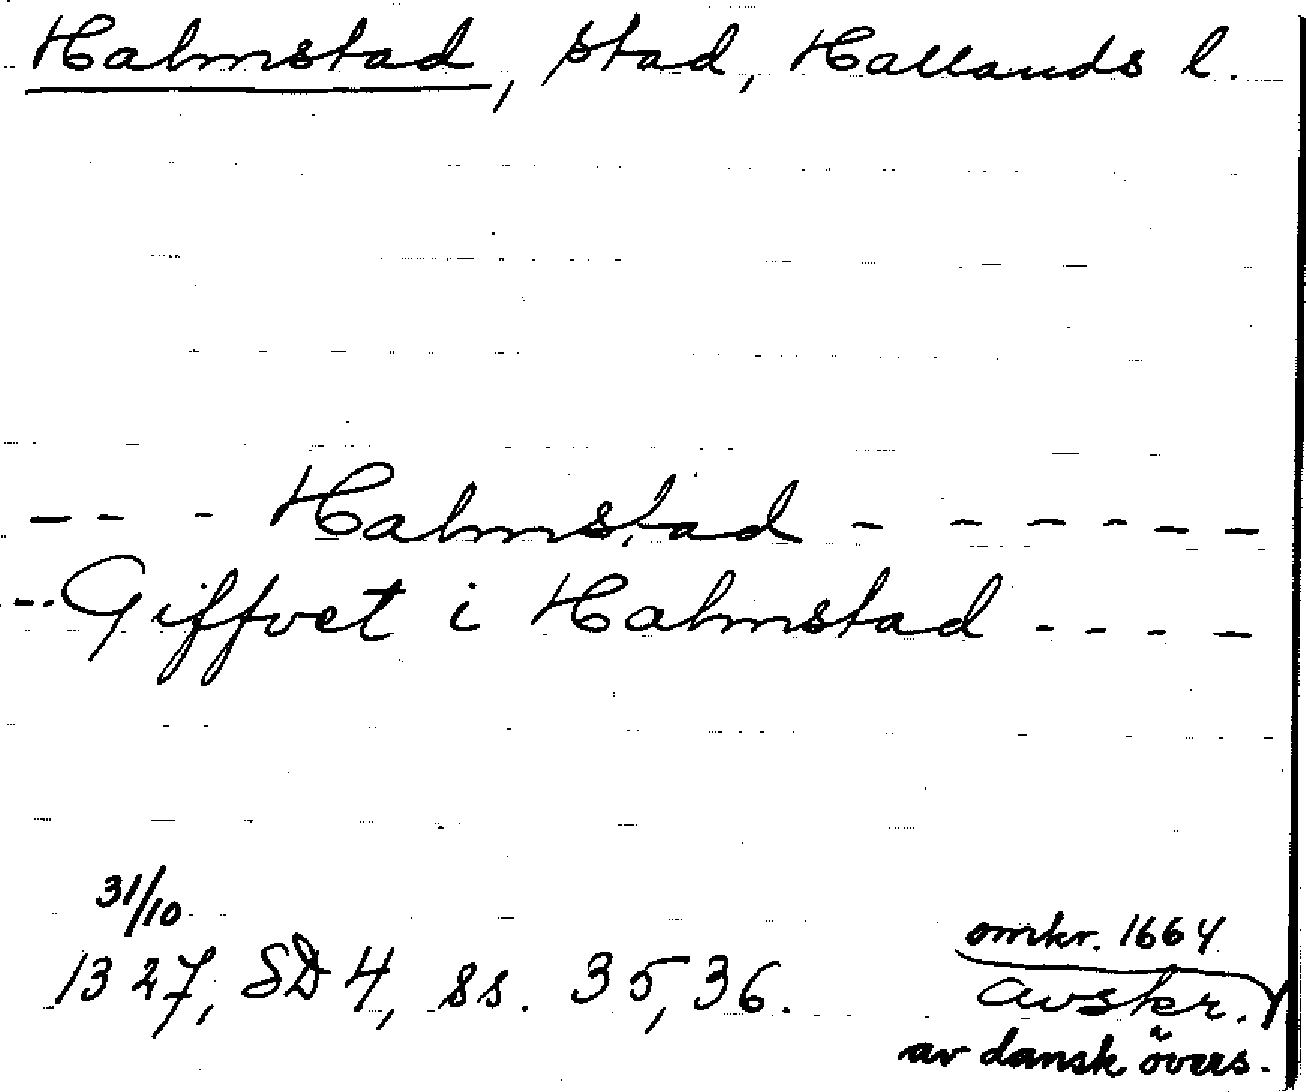 Halmstad, stad, Hallands l.
--- Halmstad ------
--Giffvet i Halmstad ----
31/10
1327, SD 4, ss. 35, 36.
omkr. 1664
avskr.
av dansk övers.